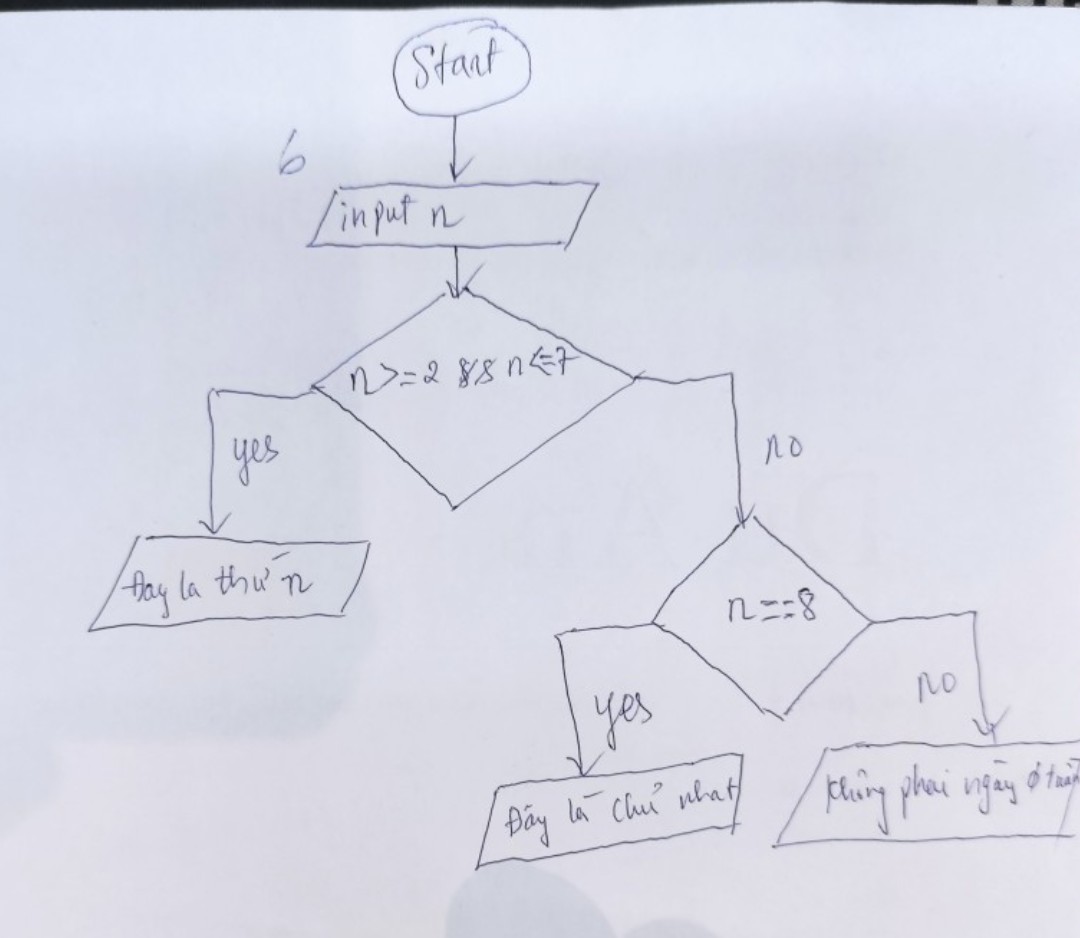 Start
6
input n
n>=2 && n<=7
yes
no
Đay la thứ n
n==8
yes
no
Đây là chủ nhat
không phai ngày ở tuần